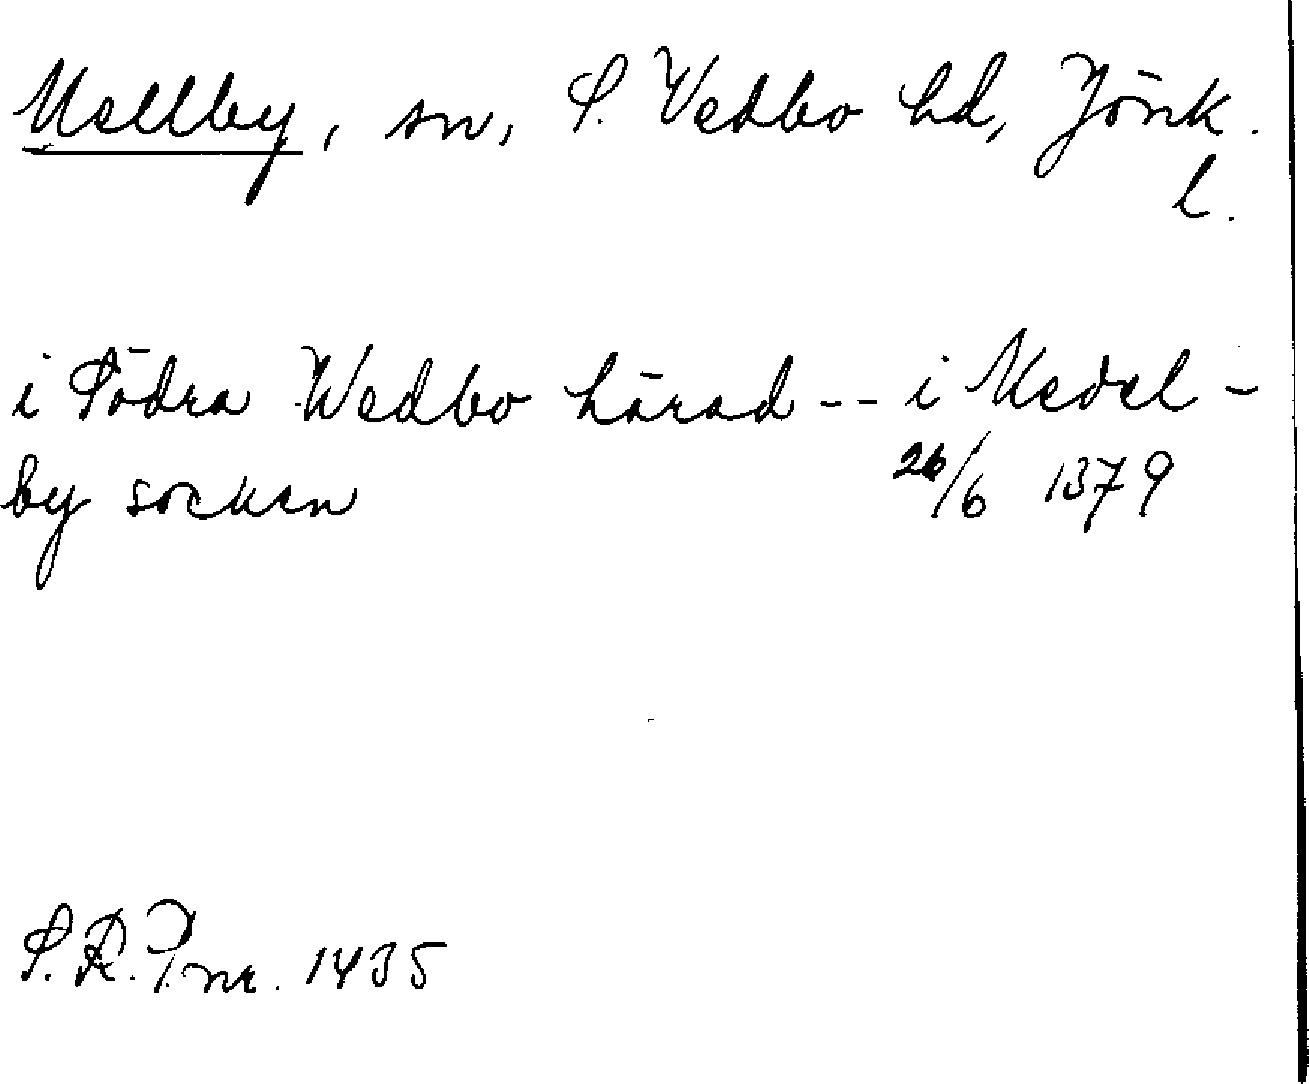 Mellby, sn, S. Vedbo hd, Jönk.
l.
i Södra Wedbo härad -- i Medel-
by socken 26/6 1379
S.R.P. nr. 1435